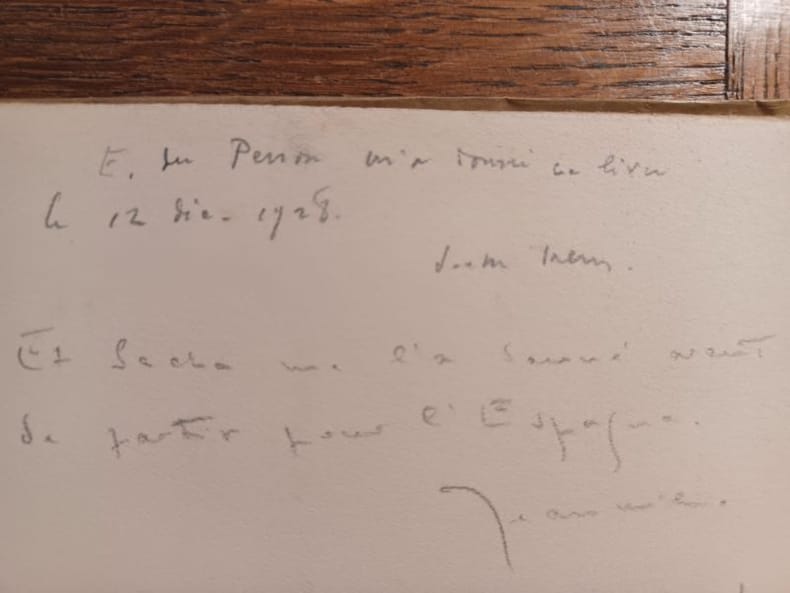 E. du Perron m'a donné ce livre
le 12 déc. 1928.
Et Sacha me l'a donné avant
de partir pour l'Espagne.